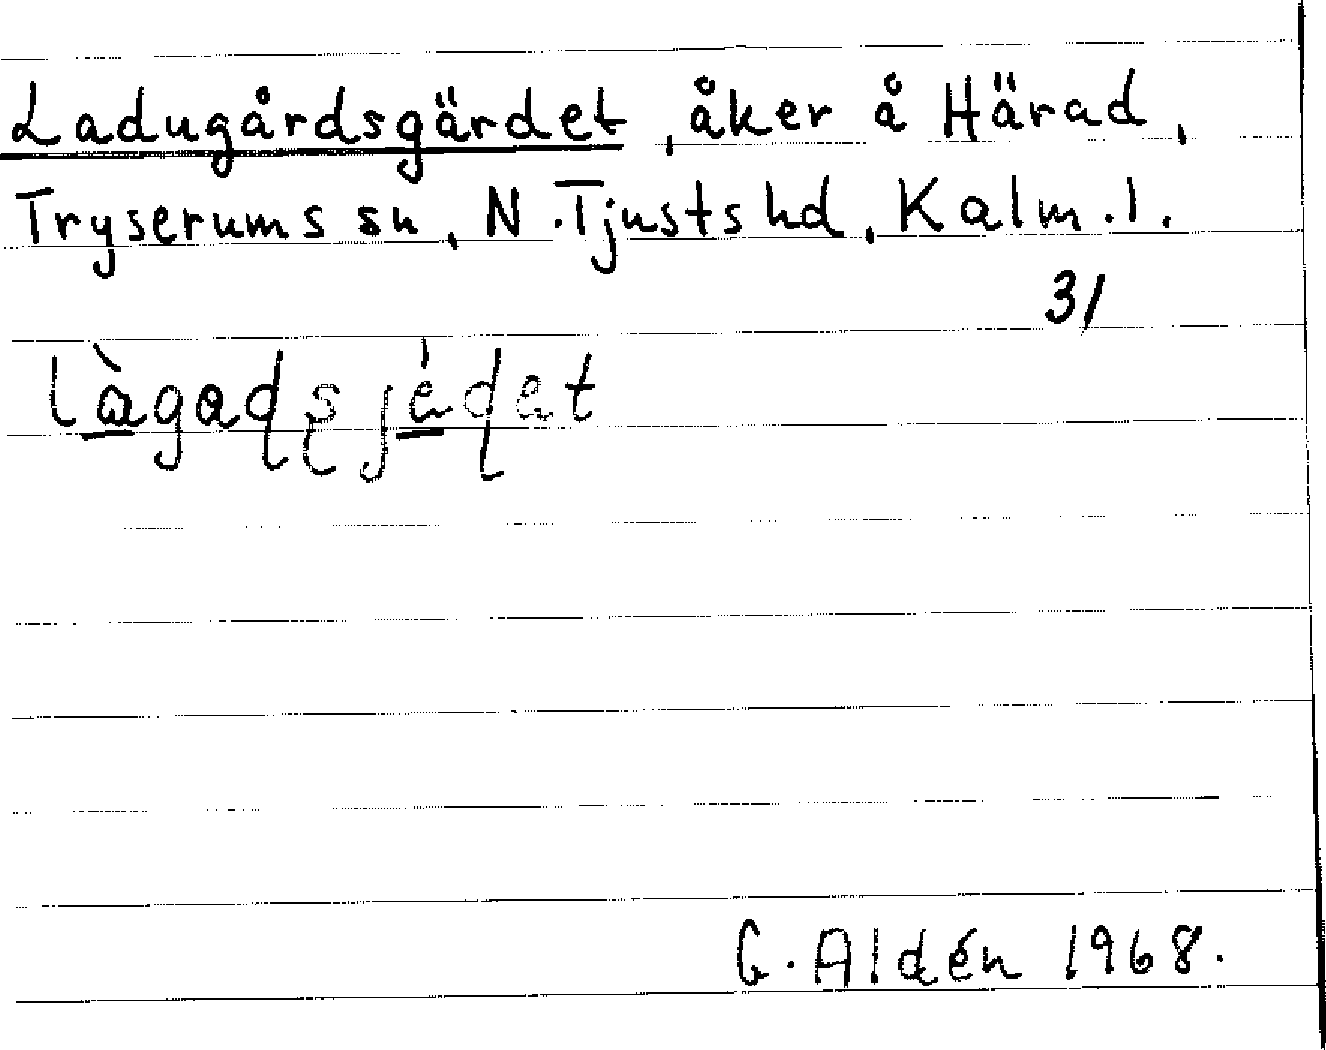 Ladugårdsgärdet, åker å Härad,
Tryserums sn, N. Tjusts hd, Kalm. l.
31
làgaɖʂjéɖet
G. Aldén 1968.